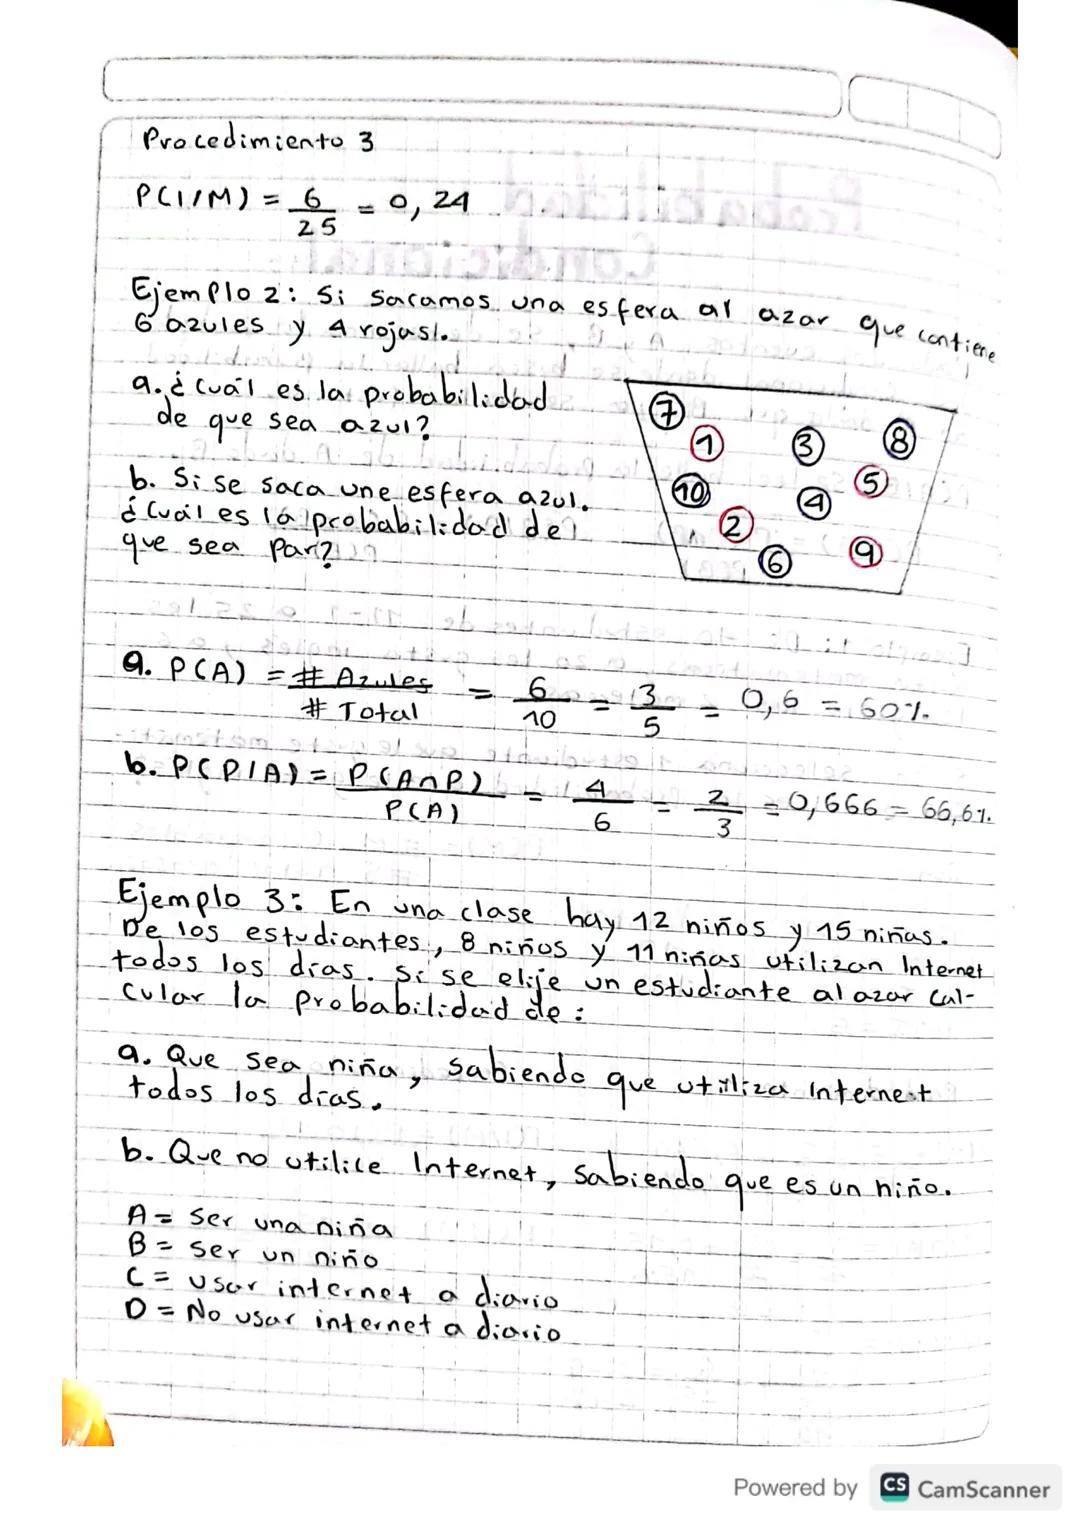 Procedimiento 3
P(I/M) = 6/25 = 0,24
Ejemplo 2: Si sacamos una esfera al azar que contiene
6 azules y 4 rojas.
a. ¿Cuál es la probabilidad
de que sea azul?
b. Si se saca une esfera azul.
¿Cuál es la probabilidad de
que sea Par?
7
1
3
8
10
4
5
2
6
9
a. P(A) = # Azules / # Total = 6/10 = 3/5 = 0,6 = 60%.
b. P(P/A) = P(A∩P) / P(A) = 4/6 = 2/3 = 0,666 = 66,6%.
Ejemplo 3: En una clase hay 12 niños y 15 niñas.
De los estudiantes, 8 niños y 11 niñas utilizan Internet
todos los días. Si se elije un estudiante al azar cal-
cular la probabilidad de:
a. Que sea niña, sabiendo que utiliza Internet
todos los días.
b. Que no utilice Internet, sabiendo que es un niño.
A = Ser una niña
B = Ser un niño
C = Usar internet a diario
D = No usar internet a diario
Powered by CS CamScanner